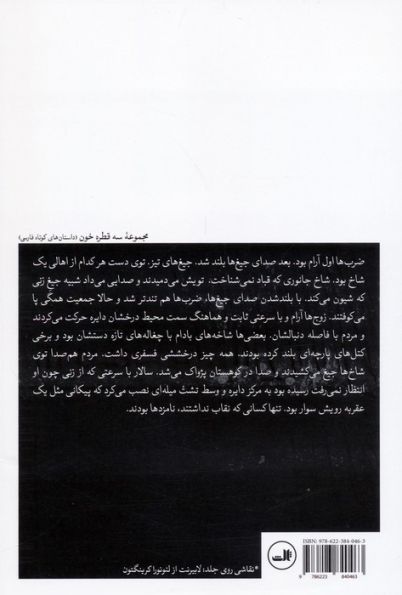 مجموعهٔ سه قطره خون (داستان‌های کوتاه فارسی)
ضرب‌ها اول آرام بود. بعد صدای جیغ‌ها بلند شد. جیغ‌های تیز. توی دست هر کدام از اهالی یک
شاخ بود، شاخ جانوری که قباد نمی‌شناخت. تویش می‌دمیدند و صدایی می‌داد شبیه جیغ زنی
که شیون می‌کند. با بلندشدن صدای جیغ‌ها، ضرب‌ها هم تندتر شد و حالا جمعیت همگی پا
می‌کوفتند. زوج‌ها آرام و با سرعتی ثابت و هماهنگ سمت محیط درخشان دایره حرکت می‌کردند
و مردم با فاصله دنبالشان. بعضی‌ها شاخه‌های بادام با چغاله‌های تازه دستشان بود و برخی
کتل‌های پارچه‌ای بلند کرده بودند. همه چیز درخششی فسفری داشت. مردم هم‌صدا توی
شاخ‌ها جیغ می‌کشیدند و صدا در کوهستان پژواک می‌شد. سالار با سرعتی که از زنی چون او
انتظار نمی‌رفت رسیده بود به مرکز دایره و وسط تشت میله‌ای نصب می‌کرد که پیکانی مثل یک
عقربه رویش سوار بود. تنها کسانی که نقاب نداشتند، نامزدها بودند.
ISBN: 978-622-384-046-3
9 786223 840463
ثالث
*نقاشی روی جلد: لابیرنت از لئونورا کرینگتون